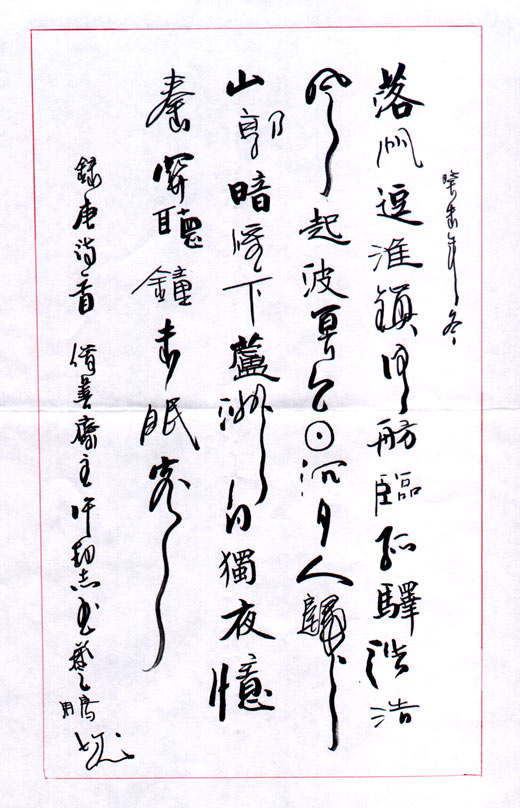 癸未年冬
落帆逗淮鎮停舫臨孤驛浩浩
風起波冥冥日沉夕人歸
山郭暗雁下蘆洲白獨夜憶
秦關聽鐘未眠客
錄唐詩首 齋主許志書